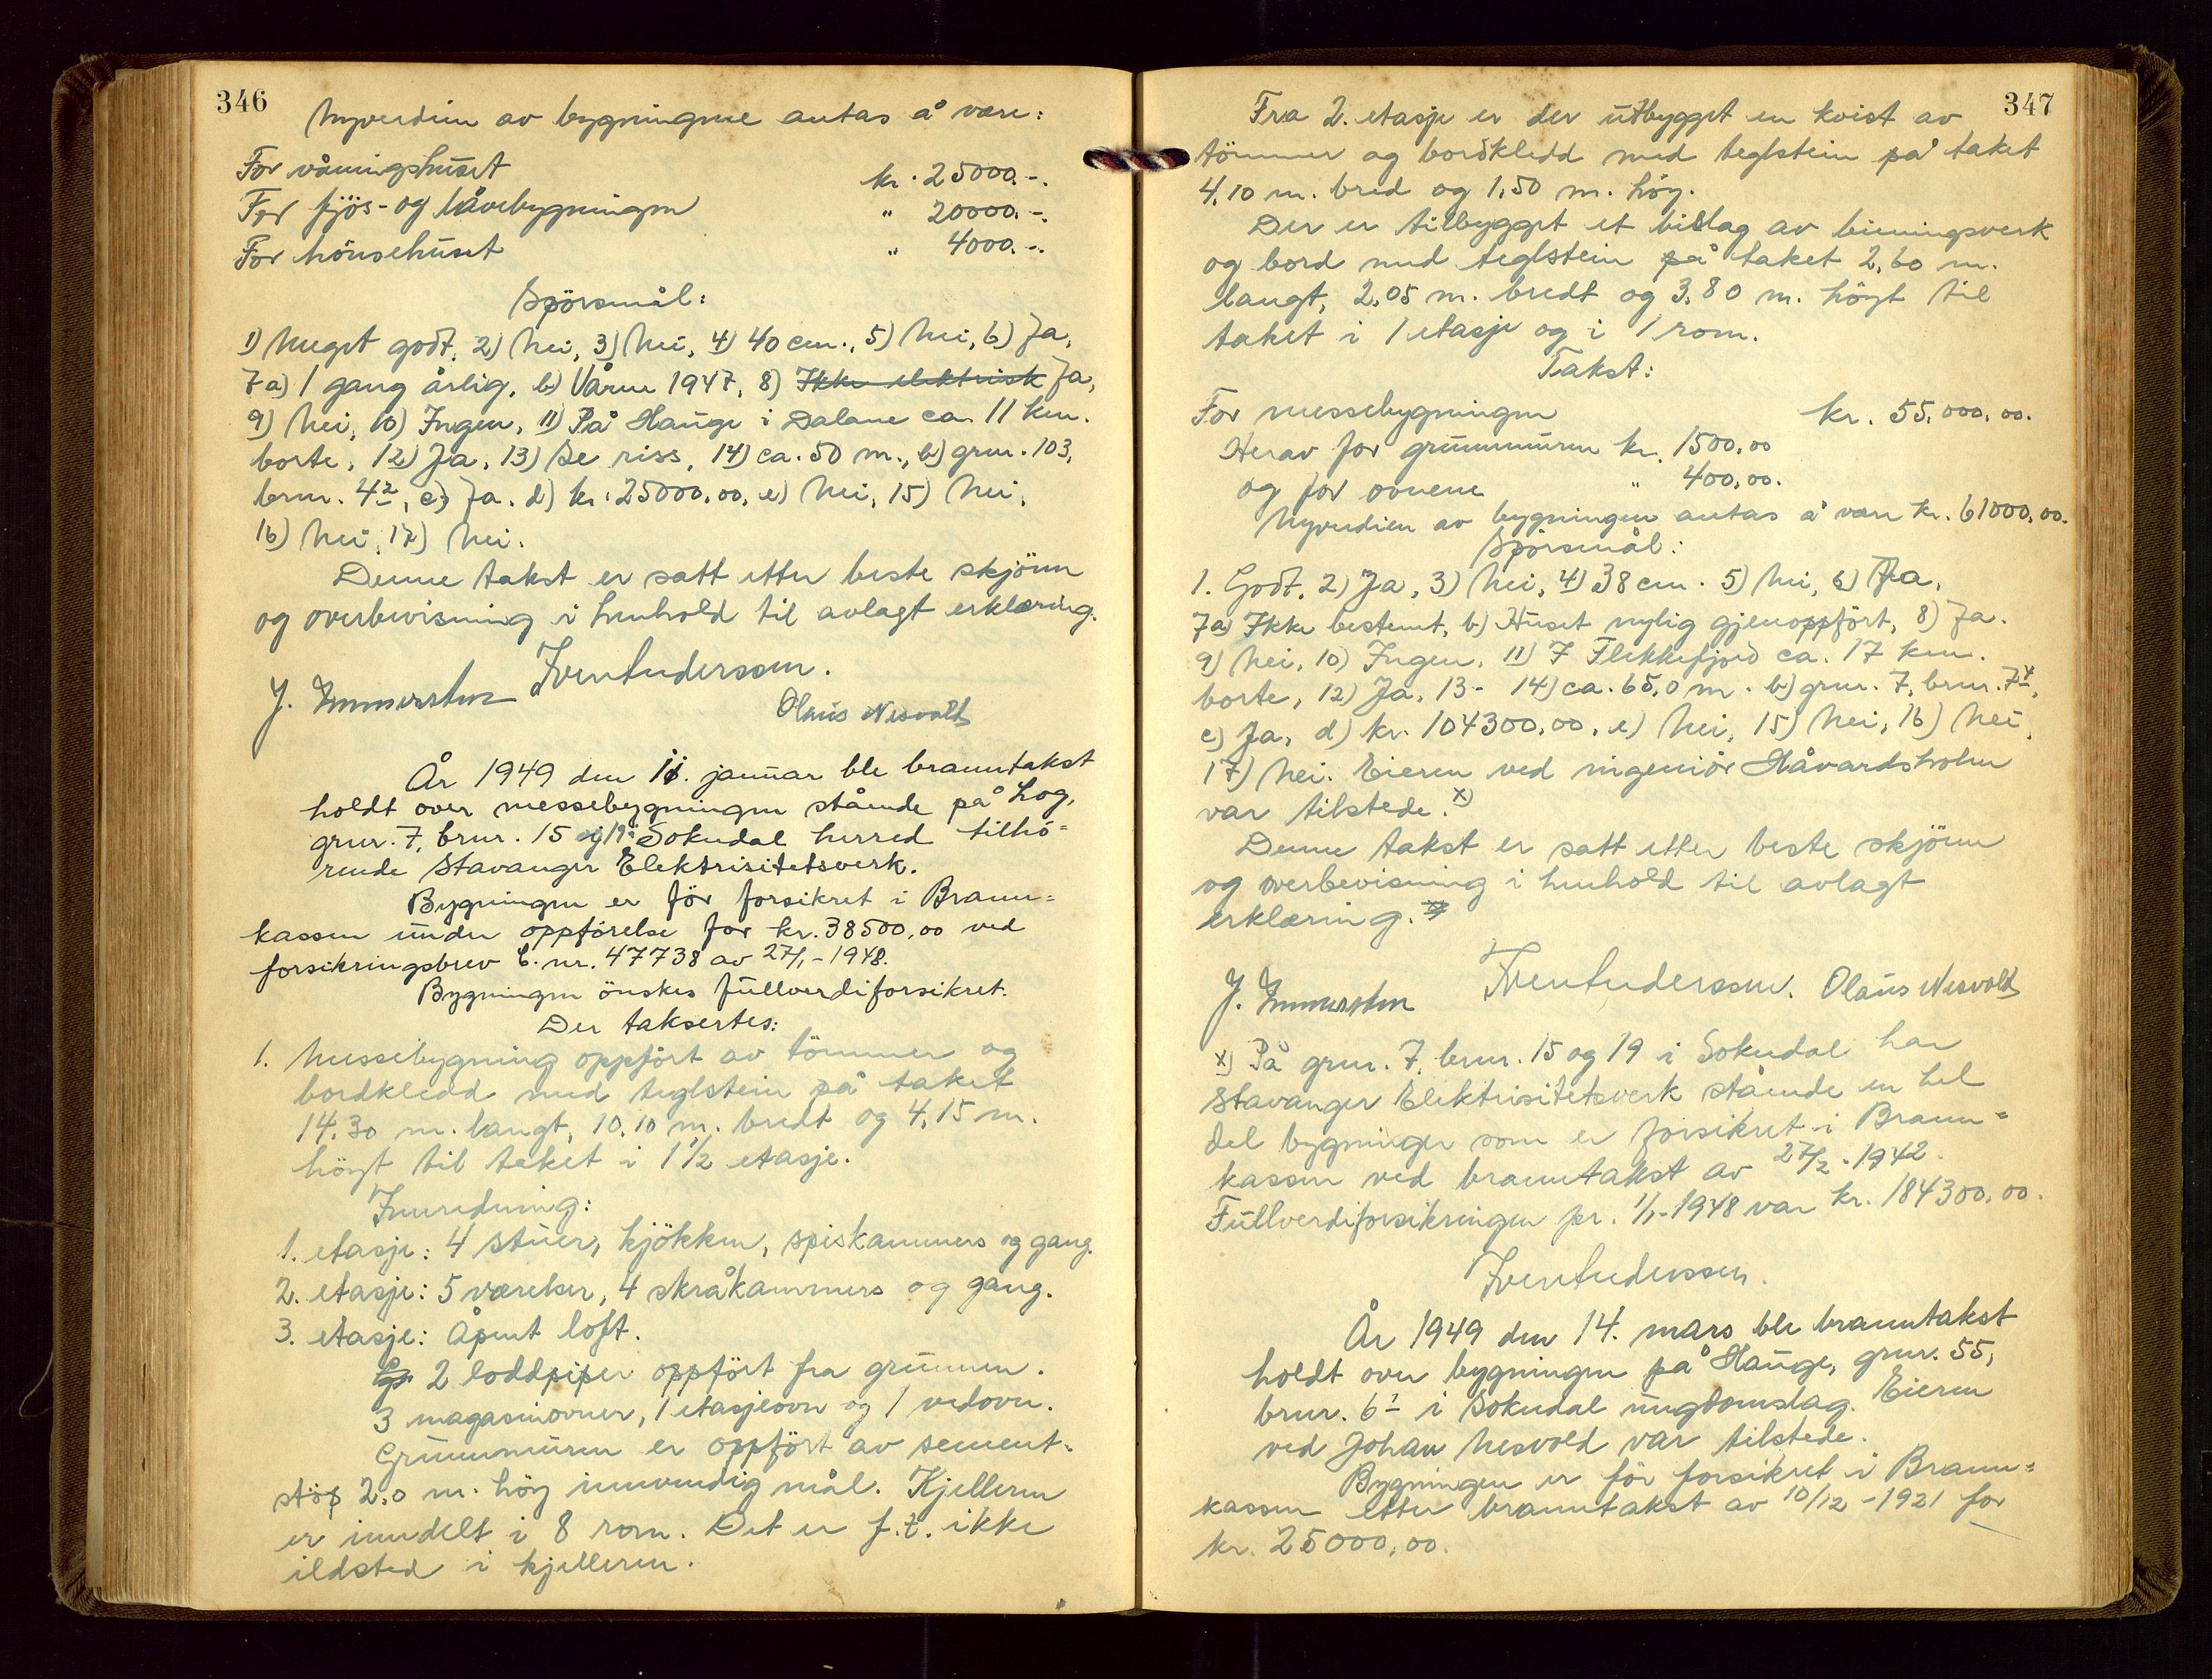 346
Nyverdien av bygningene antas å være:
For våningshuset kr. 25000.-.
For fjös- og låvebygningen " 20000.-.
For hönsehuset " 4000.-.
Spörsmål:
1) Meget godt, 2) Nei, 3) Nei, 4) 40 cm., 5) Nei, 6) Ja,
7a) 1 gang årlig, b) Våren 1947, 8) Ikke elektrisk Ja,
9) Nei, 10) Ingen, 11) På Hauge i Dalane ca. 11 km.
borte, 12) Ja, 13) Se riss, 14) ca. 50 m., b) grnr. 103,
brnr. 4², c) Ja. d) kr. 25000,00, e) Nei, 15) Nei,
16) Nei, 17) Nei.
Denne takst er satt etter beste skjönn
og overbevisning i henhold til avlagt erklæring.
Olaus Nesvold
År 1949 den 11. januar ble branntakst
holdt over messebygningen stående på Log,
grnr. 7, brnr. 15 og 19 i Sokndal herred tilhö-
rende Stavanger Elektrisitetsverk.
Bygningen er för forsikret i Brann-
kassen under oppförelse for kr. 38500,00 ved
forsikringsbrev C. nr. 47738 av 27/1-1948.
Bygningen önskes fullverdiforsikret.
Der taksertes:
1. Messebygning oppfört av tömmer og
bordkledd med teglstein på taket
14,30 m. langt, 10,10 m. bredt og 4,15 m.
höyt til taket i 1 1/2 etasje.
Innredning:
1. etasje: 4 stuer, kjökken, spiskammers og gang.
2. etasje: 5 værelser, 4 skråkammers og gang.
3. etasje: Åpent loft.
2 loddpiper oppfört fra grunnen.
3 magasinovner, 1 etasjeovn og 1 vedovn.
Grunnmuren er oppfört av sement-
stöp 2,0 m. höy innvendig mål. Kjelleren
er inndelt i 8 rom. Det er f.t. ikke
ildsted i kjelleren.
347
Fra 2. etasje er der utbygget en kvist av
tömmer og bordkledd med teglstein på taket
4,10 m. bred og 1,50 m. höy.
Der er tilbygget et bislag av bindingsverk
og bord med teglstein på taket 2,60 m.
langt, 2,05 m. bredt og 3,80 m. höyt til
taket i 1 etasje og i 1 rom.
Takst:
For messebygningen kr. 55,000,00.
Herav for grunnmuren kr. 1500,00
og for ovnene " 400,00.
Nyverdien av bygningen antas å være kr. 61000,00.
Spörsmål:
1. Godt, 2) Ja, 3) Nei, 4) 38 cm. 5) Nei, 6) Ja,
7a) Ikke bestemt, b) Huset nylig gjenoppfört, 8) Ja.
9) Nei, 10) Ingen, 11) I Flekkefjord ca. 17 km.
borte, 12) Ja, 13- 14) ca. 65,0 m. b) grnr. 7, brnr. 7⁴,
c) Ja, d) kr. 104300,00, e) Nei, 15) Nei, 16) Nei,
17) Nei. Eieren ved ingeniör Håvardsholm
var tilstede. x)
Denne takst er satt etter beste skjönn
og overbevisning i henhold til avlagt
erklæring.
Olaus Nesvold
x) På grnr. 7, brnr. 15 og 19 i Sokndal har
Stavanger Elektrisitetsverk stående en hel
del bygninger som er forsikret i Brann-
kassen ved branntakst av 27/2-1942.
Fullverdiforsikringen pr. 1/1-1948 var kr. 184300,00.
År 1949 den 14. mars ble branntakst
holdt over bygningen på Hauge, grnr. 55,
brnr. 6¹ i Sokndal ungdomslag. Eieren
ved Johan Nesvold var tilstede.
Bygningen er för forsikret i Brann-
kassen etter branntakst av 10/12-1921 for
kr. 25000,00.